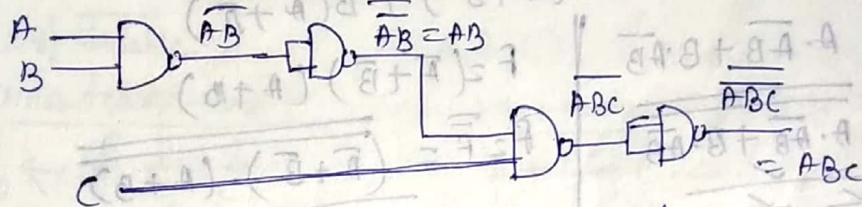 A
B
C
A̅B̅
A̿B̿ = AB
A̅B̅C̅
A̿B̿C̿
= ABC